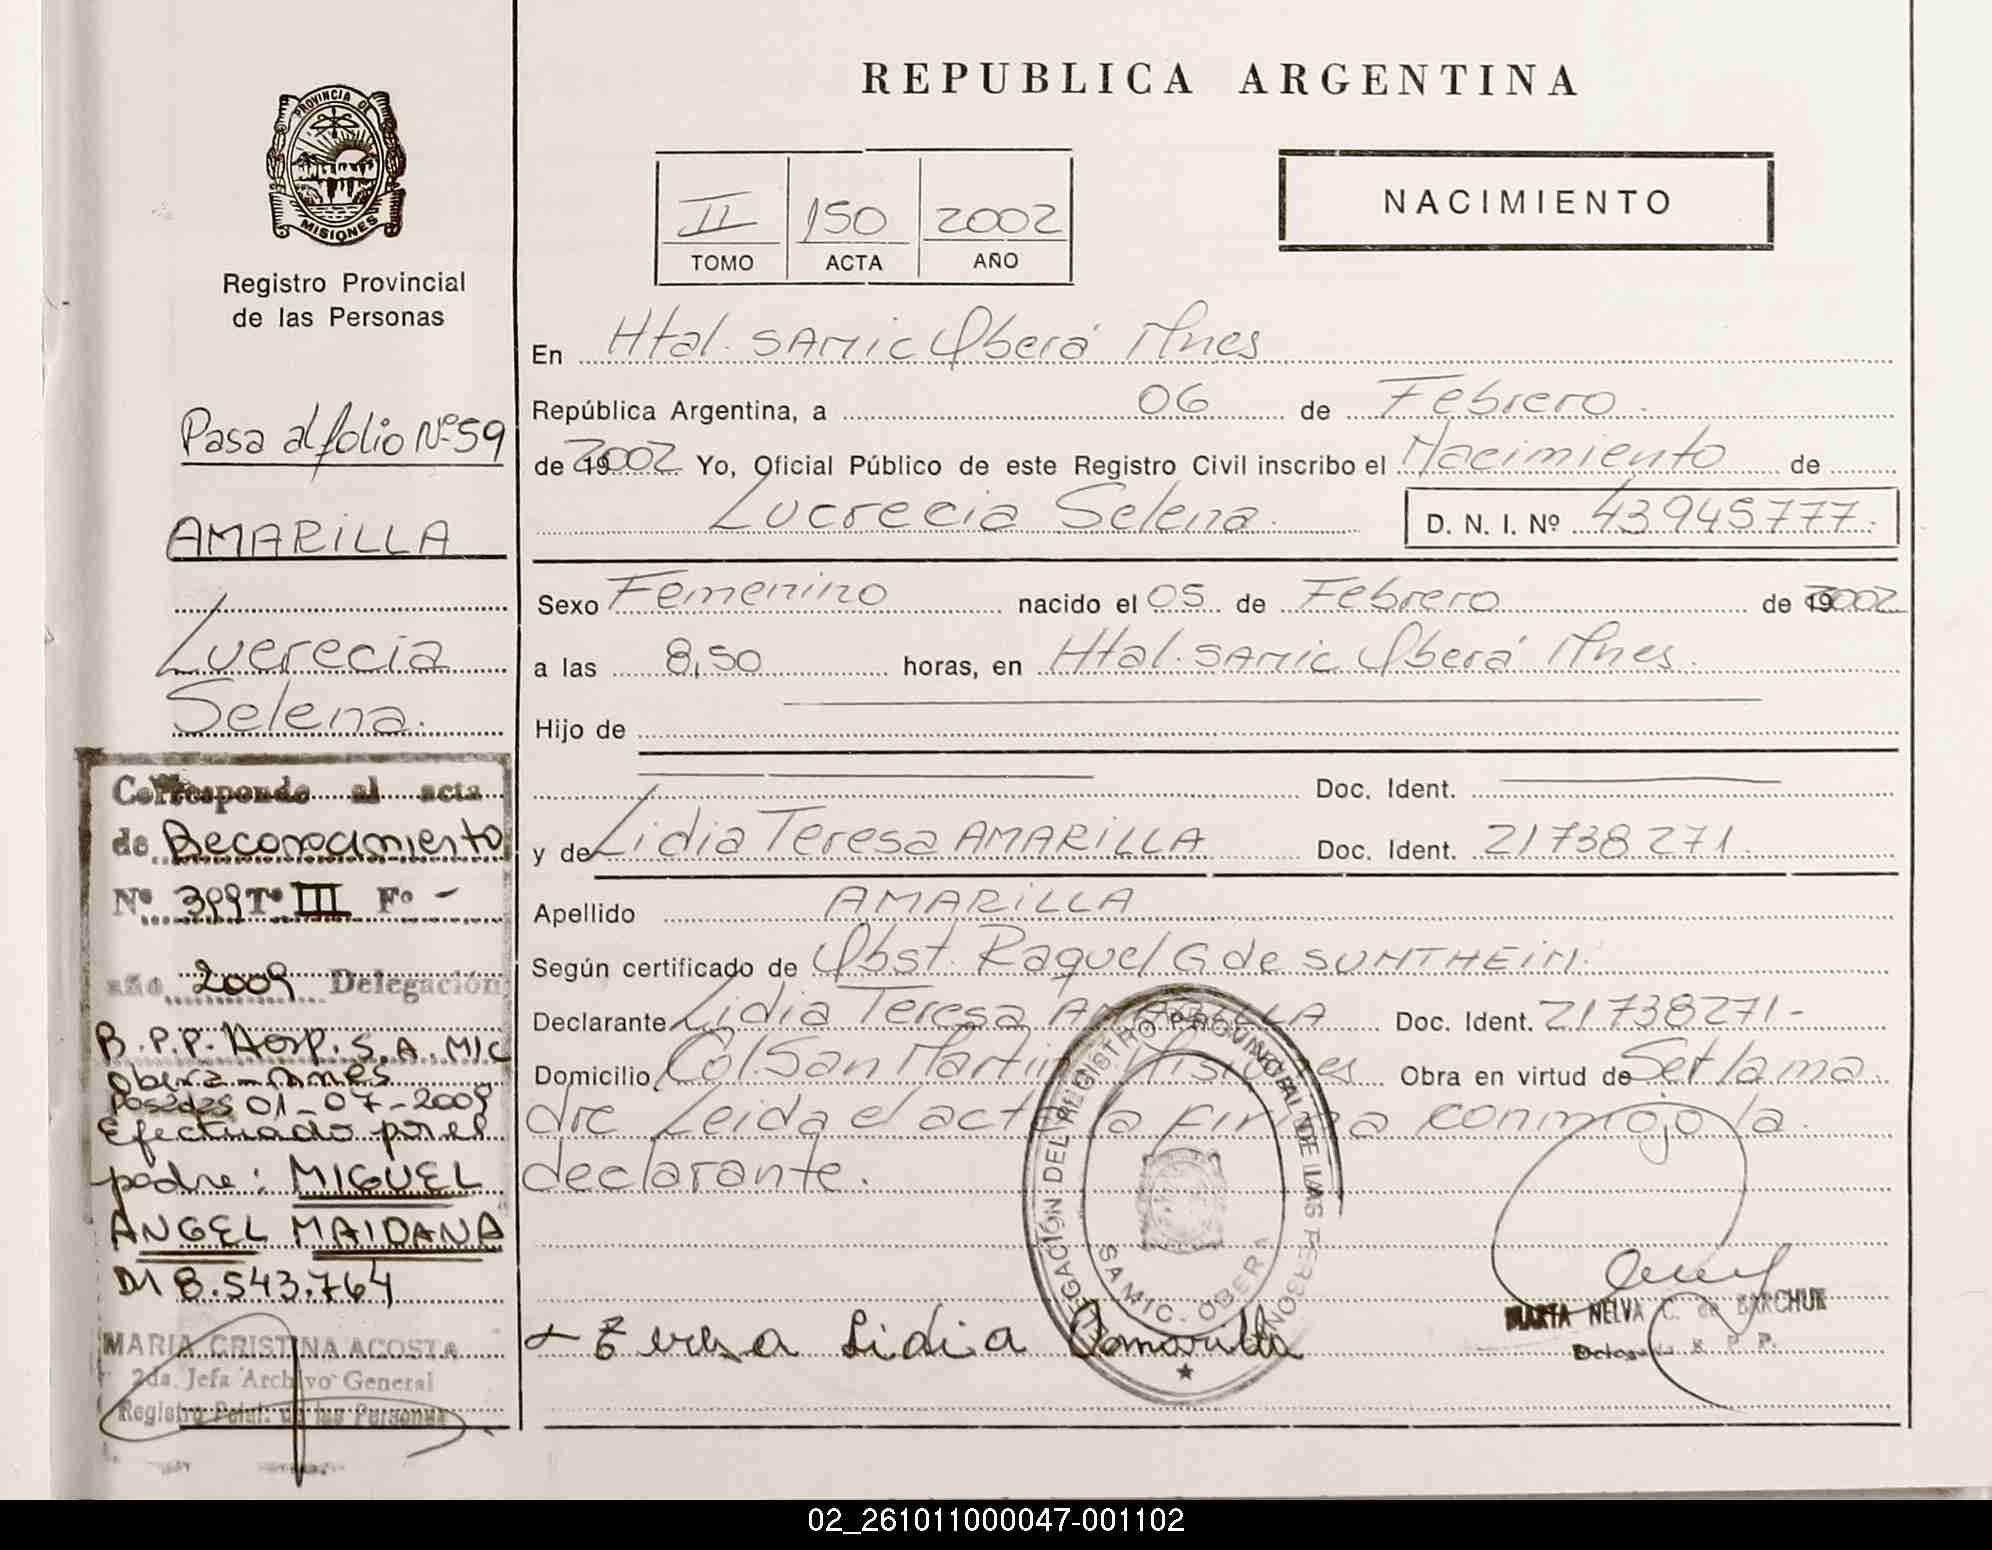 REPUBLICA ARGENTINA
PROVINCIA DE
MISIONES
Registro Provincial
de las Personas
II 150 2002
TOMO ACTA AÑO
NACIMIENTO
En Htal. SAMIC Oberá Mnes
República Argentina, a 06 de Febrero
de 2002 Yo, Oficial Público de este Registro Civil inscribo el Nacimiento de
Lucrecia Selena. D. N. I. Nº 43945777.
Sexo Femenino nacido el 05 de Febrero de 2002
a las 8,50 horas, en Htal. SAMIC Oberá Mnes.
Hijo de
Doc. Ident.
y de Lidia Teresa AMARILLA Doc. Ident. 21738271.
Apellido AMARILLA
Según certificado de Obst. Raquel G de SUNTHEIM.
Declarante Lidia Teresa AMARILLA Doc. Ident. 21738271-
Domicilio Col. San Martin Misiones Obra en virtud de Ser la ma
dre Leida el acta la firma conmigo la
declarante.
Lidia Amarilla
DELEGACIÓN DEL REGISTRO PROVINCIAL DE LAS PERSONAS
SAMIC. OBERA
MARTA NELVA C. de BARCHUK
Pasa al folio Nº 59
AMARILLA
Lucrecia
Selena.
Corresponde al acta
de Reconocimiento
Nº 399 Tº III Fº -
año 2009 Delegación
B.P.P. Hosp. S.A.MIC
Obera - Mnes
Posadas 01-07-2009
Efectuado por el
padre: MIGUEL
ANGEL MAIDANA
DI 8.543.764
MARIA CRISTINA ACOSTA
2da. Jefa Archivo General
Registro Pcial. de las Personas
02_261011000047-001102